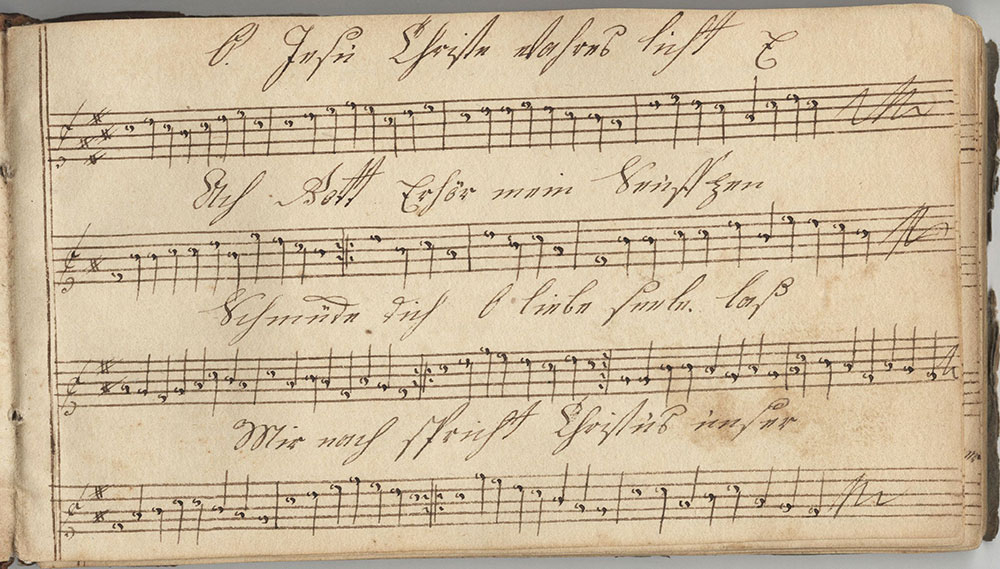 O. Jesu Christe wahres licht E
Ach Gott Erhör mein Seuffzen
Schmüde dich O liebe seele. laß
Mir nach spricht Christus unser